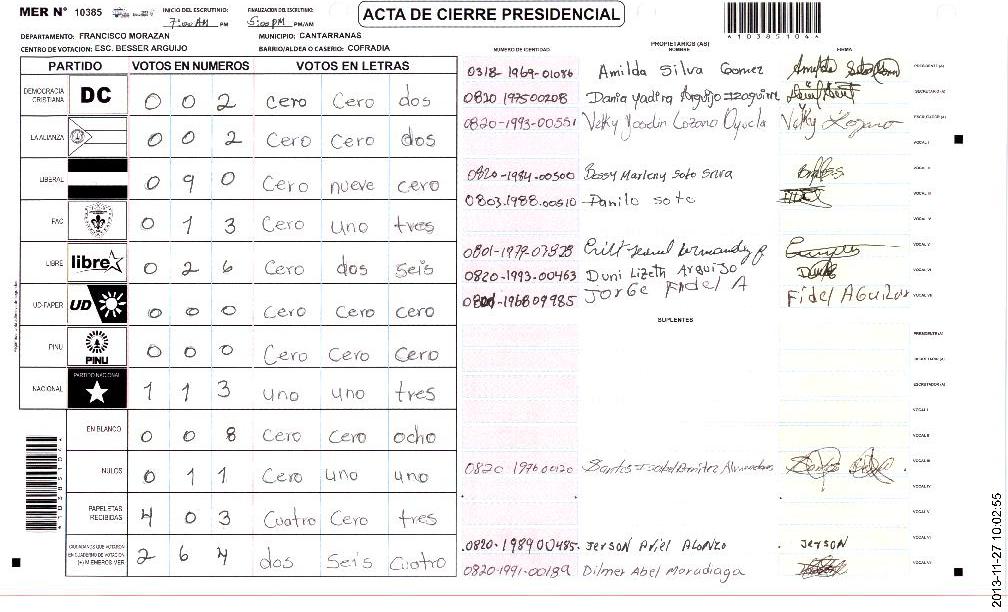 MER N° 10385 INICIO DEL ESCRUTINIO: 7:00 AM PM FINALIZACION DEL ESCRUTINIO: 5:00 PM PM/AM
ACTA DE CIERRE PRESIDENCIAL
*10385104*
DEPARTAMENTO: FRANCISCO MORAZAN MUNICIPIO: CANTARRANAS
CENTRO DE VOTACION: ESC. BESSER ARGUIJO BARRIO/ALDEA O CASERIO: COFRADIA
PROPIETARIOS (AS)
NUMERO DE IDENTIDAD NOMBRE FIRMA
PARTIDO VOTOS EN NUMEROS VOTOS EN LETRAS
DEMOCRACIA CRISTIANA DC 0 0 2 cero Cero dos
LA ALIANZA 0 0 2 Cero Cero dos
LIBERAL 0 9 0 Cero nueve cero
PAC 0 1 3 Cero uno tres
LIBRE libre 0 2 6 Cero dos seis
UD-FAPER UD 0 0 0 Cero Cero cero
PINU PINU 0 0 0 Cero Cero Cero
NACIONAL PARTIDO NACIONAL 1 1 3 uno uno tres
EN BLANCO 0 0 8 Cero Cero ocho
NULOS 0 1 1 Cero uno uno
PAPELETAS RECIBIDAS 4 0 3 Cuatro Cero tres
CIUDADANOS QUE VOTARON EN CUADERNO DE VOTACION (+) MIEMBROS MER 2 6 4 dos Seis Cuatro
0318-1969-01086 Amilda Silva Gomez PRESIDENTE (A)
0820 197500208 Dania Yadira Arguijo Izaguirre SECRETARIO (A)
0820-1993-00551 Velky Yoselin Lozano Velky Lozano ESCRUTADOR (A)
VOCAL I
0820-1984-00500 Bessy Marleny Soto Silva VOCAL II
0803.1988.00510 Danilo soto VOCAL III
VOCAL IV
0801-1979-07928 VOCAL V
0820-1993-00463 Duni Lizeth Arguijo VOCAL VI
1968 09985 JORGE FIDEL A FIDEL AGUILAR VOCAL VII
SUPLENTES
PRESIDENTE (A)
SECRETARIO (A)
ESCRUTADOR (A)
VOCAL I
VOCAL II
0820 1976 00120 Santos Isabel VOCAL III
VOCAL IV
VOCAL V
0820-1989 00485- JERSON Ariel ALONZO JERSON VOCAL VI
0820-1991-00189 Dilmer Abel Moradiaga VOCAL VII
2013-11-27 10:02:55